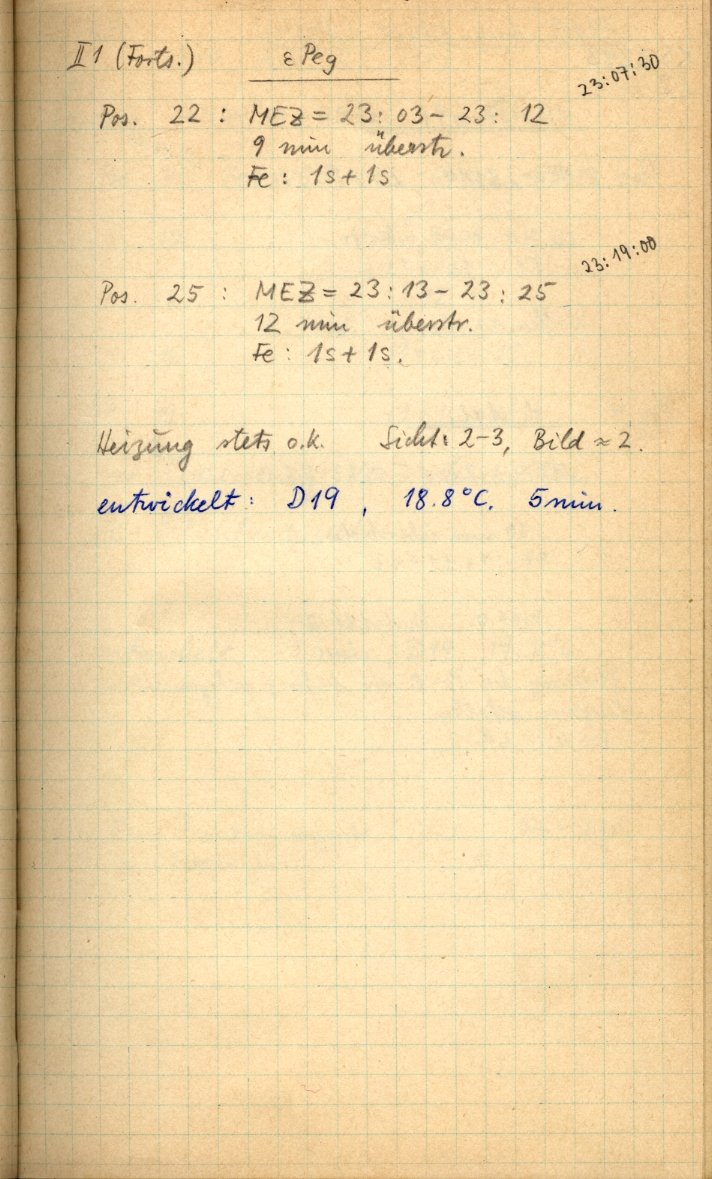 II 1 (Forts.) ε Peg
23:07:30
Pos. 22 : MEZ = 23: 03 - 23: 12
9 min überstr.
Fe : 1s + 1s
23:19:00
Pos. 25 : MEZ = 23:13 - 23:25
12 min überstr.
Fe : 1s + 1s.
Heizung stets o.k. Sicht: 2-3, Bild ≈ 2.
entwickelt: D19, 18.8°C. 5min.